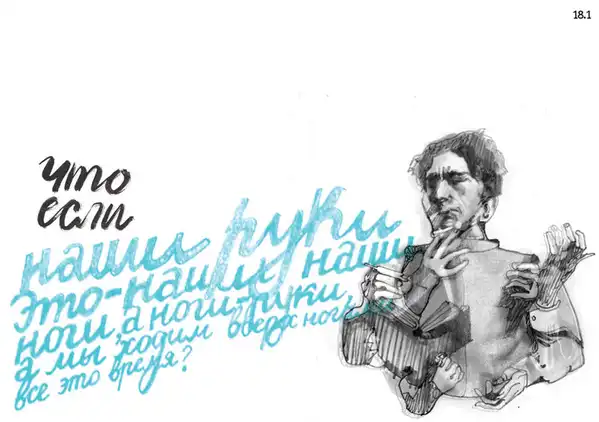 18.1
что
если
наши руки
это-наши наши
ноги, а ноги-руки,
а мы ходим вверх ногами
все это время?